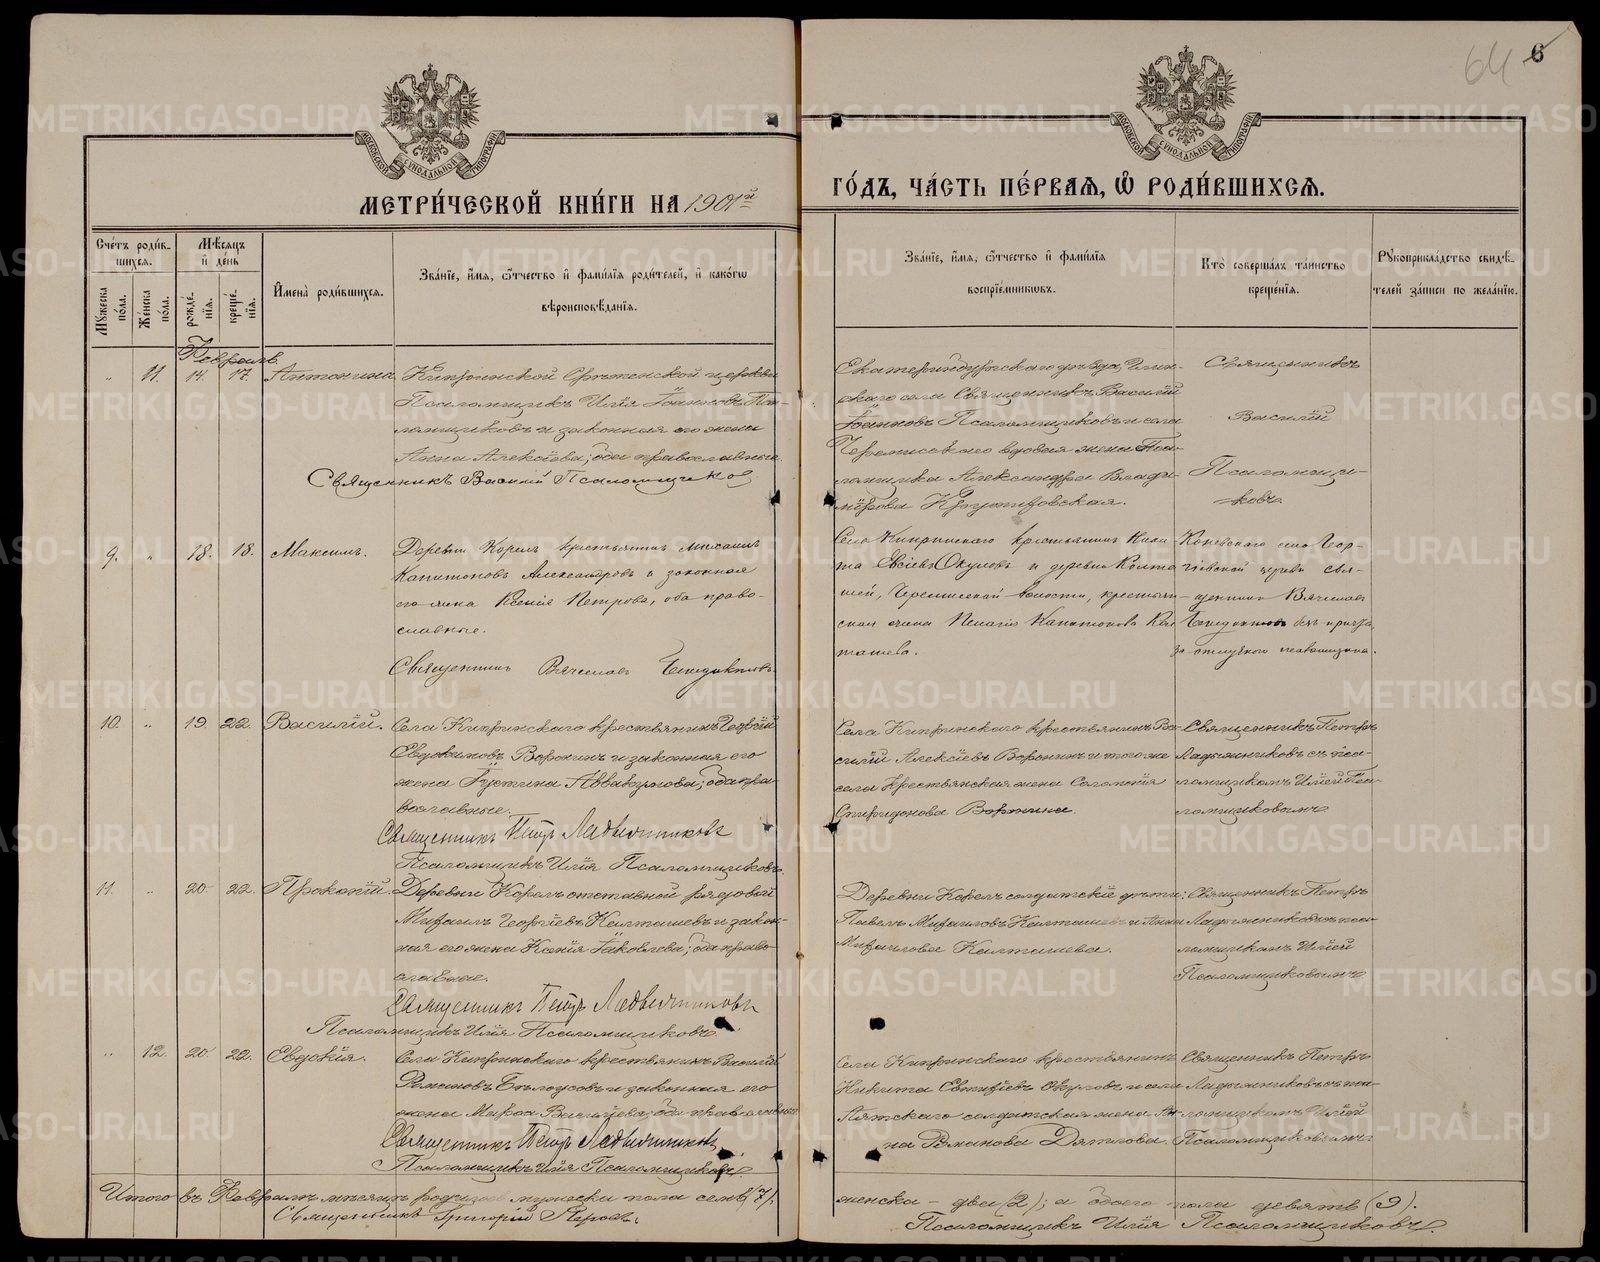 64 6
МОСКОВСКОЙ СѴНОДАЛЬНОЙ ТИПОГРАФІИ
МОСКОВСКОЙ СѴНОДАЛЬНОЙ ТИПОГРАФІИ
МЕТРИ́ЧЕСКОЙ КНИ́ГИ НА 1901й
ГО́ДЪ, ЧА́СТЬ ПЕ́РВАѦ, Ѽ РОДИ́ВШИХСѦ.
Сче́тъ роди́в-
шихсѧ.
Мꙋ́жеска по́ла.
Же́нска по́ла.
Мѣ́сѧцъ
и҆ де́нь
рожде́-
нїѧ.
креще́-
нїѧ.
И҆мена̀ роди́вшихсѧ.
Зва́нїе, и҆́мѧ, ѻ҆́тчество и҆ фами́лїѧ роди́телей, и҆ како́гѡ
вѣроисповѣ́данїѧ.
Зва́нїе, и҆́мѧ, ѻ҆́тчество и҆ фами́лїѧ
воспрїе́мникѡвъ.
Кто̀ соверша́лъ та́инство
креще́нїѧ.
Рꙋкоприкла́дство свидѣ́-
телей за́писи по жела́нїю.
Февраль.
" 11. 14. 17. Антонина
Кипринской Срѣтенской церкви
Псаломщикъ Илія Іоанновъ Пса-
ломщиковъ и законная его жена
Анна Алексіева; оба православные.
Священникъ Василій Псаломщиковъ
Екатеринбургскаго уѣзда,
скаго села Священникъ Василій
Іоанновъ Псаломщиковъ и села
Черемисскаго вдовая жена Пса-
ломщика Александра Влади-
мірова
Священникъ
Василій
Псаломщи-
ковъ.
9. " 18. 18. Максимъ.
Деревни Корелъ крестьянинъ Михаилъ
Капитоновъ Александровъ и законная
его жена Ксенія Петрова, оба право-
славные.
Священникъ Вячеславъ
Села Кипринскаго крестьянинъ Ники-
та Евсіевъ Окуловъ и деревни Колта-
шей, Черемисской волости, крестьян-
ская жена Пелагія Капитонова Кал-
ташева.
Коневскаго села Геор-
гіевской церкви свя-
щенникъ Вячеславъ
безъ причта,
за отлучкою псаломщика.
10. " 19. 22. Василій.
Села Кипринскаго крестьянинъ Георгій
Евдокимовъ Воронинъ и законная его
жена Іустина Аввакумова; оба пра-
вославные.
Священникъ Петръ Ладыжниковъ
Псаломщикъ Илія Псаломщиковъ.
Села Кипринскаго крестьянинъ Ва-
силій Алексіевъ Воронинъ и того же
села Крестьянская жена Соломонія
Спиридонова Воронина.
Священникъ Петръ
Ладыжниковъ съ пса-
ломщикомъ Иліей Пса-
ломщиковымъ
11. " 20. 22. Прокопій.
Деревни Корелъ отставной рядовой
Михаилъ Георгіевъ Калташевъ и закон-
ная его жена Ксенія Іаковлева; оба право-
славные.
Священникъ Петръ Ладыжниковъ
Псаломщикъ Илія Псаломщиковъ
Деревни Корелъ солдатскіе дѣти:
Павелъ Михаиловъ Калташевъ и Анна
Михаилова Калташева.
Священникъ Петръ
Ладыжниковъ съ пса-
ломщикомъ Иліей
Псаломщиковымъ
" 12. 20. 22. Евдокія.
Села Кипринскаго крестьянинъ Василій
Романовъ Бѣлоусовъ и законная его
жена Васильева; оба православные
Священникъ Петръ Ладыжниковъ
Псаломщикъ Илія Псаломщиковъ.
Села Кипринскаго крестьянинъ
Никита Евсіевъ Окуловъ и села
солдатская жена Ан-
на Романова Дятлова.
Священникъ Петръ
Ладыжниковъ съ пса-
ломщикомъ Иліей
Псаломщиковымъ.
Итого въ Февралѣ мѣсяцѣ родилось мужеска пола семь (7);
женска - два (2); а обоего пола девять (9).
Священникъ Григорій
Псаломщикъ Илія Псаломщиковъ.
METRIKI.GASO-URAL.RU